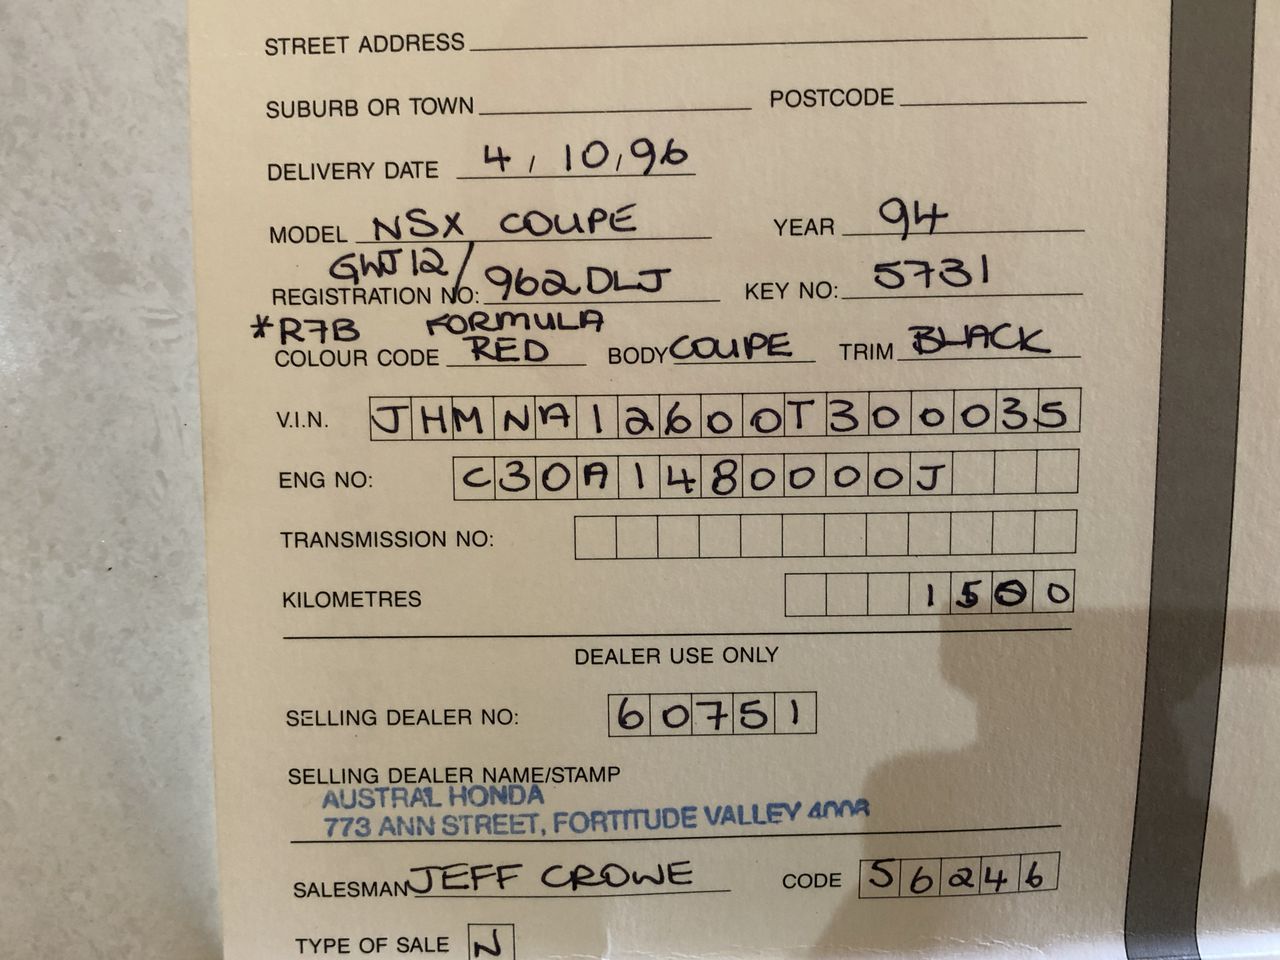 STREET ADDRESS
SUBURB OR TOWN POSTCODE
DELIVERY DATE 4, 10, 96
MODEL NSX COUPE YEAR 94
GWJ12/
REGISTRATION NO: 962DLJ KEY NO: 5731
*R7B FORMULA
COLOUR CODE RED BODY COUPE TRIM BLACK
V.I.N. JHMNA12600T300035
ENG NO: C30A1480000J
TRANSMISSION NO:
KILOMETRES 1500
DEALER USE ONLY
SELLING DEALER NO: 60751
SELLING DEALER NAME/STAMP
AUSTRAL HONDA
773 ANN STREET, FORTITUDE VALLEY 4006
SALESMAN JEFF CROWE CODE 56246
TYPE OF SALE N